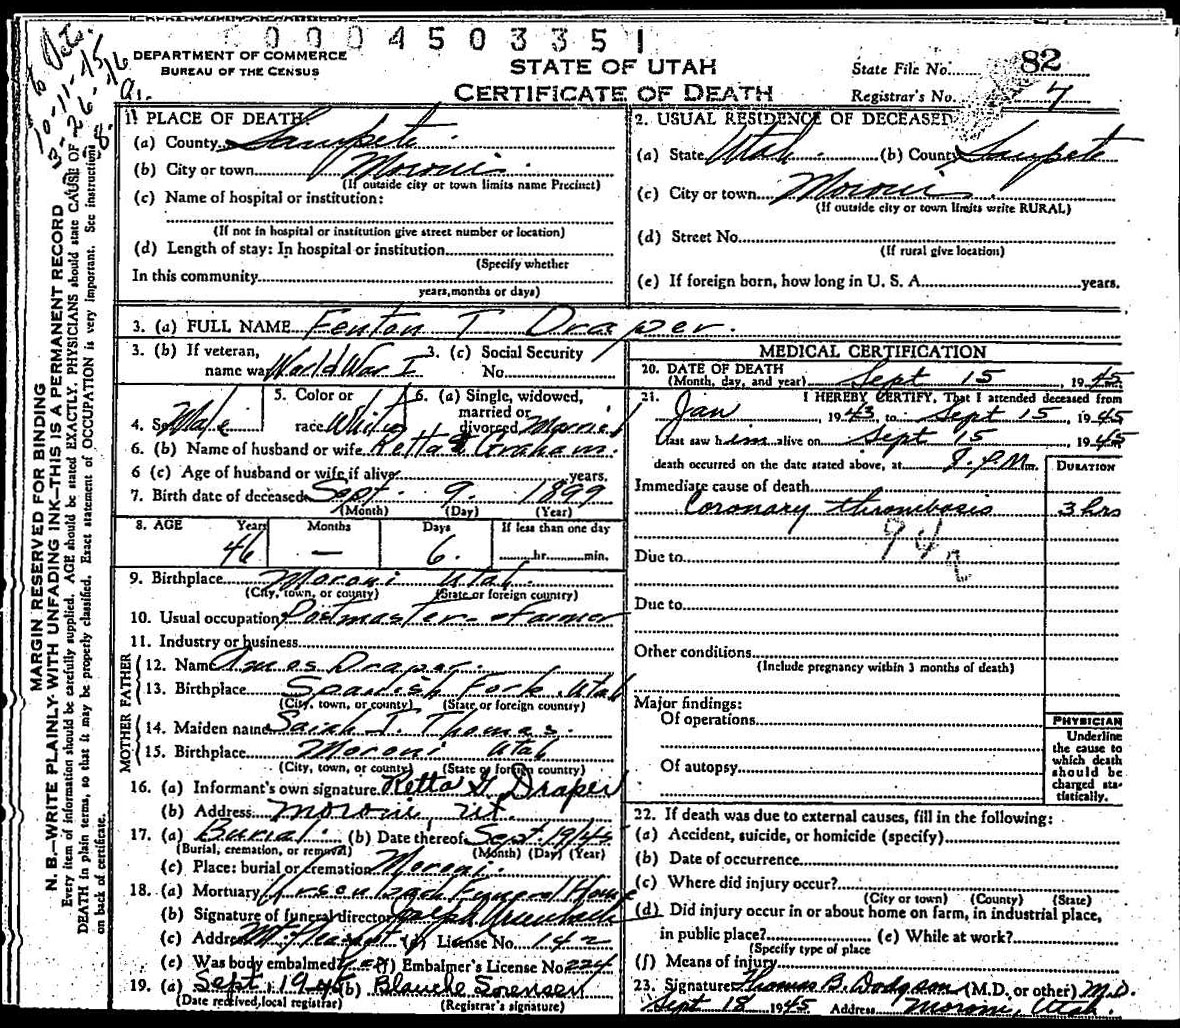 0004503351
DEPARTMENT OF COMMERCE
BUREAU OF THE CENSUS
STATE OF UTAH
CERTIFICATE OF DEATH
State File No. 82
Registrar's No. 7
MARGIN RESERVED FOR BINDING
N. B.—WRITE PLAINLY WITH UNFADING INK—THIS IS A PERMANENT RECORD
Every item of information should be carefully supplied. AGE should be stated EXACTLY. PHYSICIANS should state CAUSE OF
DEATH in plain terms, so that it may be properly classified. Exact statement of OCCUPATION is very important. See instructions
on back of certificate.
1. PLACE OF DEATH:
(a) County Sanpete
(b) City or town Moroni
(If outside city or town limits name Precinct)
(c) Name of hospital or institution:
(If not in hospital or institution give street number or location)
(d) Length of stay: In hospital or institution
(Specify whether
In this community
years, months or days)
2. USUAL RESIDENCE OF DECEASED
(a) State Utah (b) County Sanpete
(c) City or town Moroni
(If outside city or town limits write RURAL)
(d) Street No.
(If rural give location)
(e) If foreign born, how long in U. S. A. years.
3. (a) FULL NAME Fenton T Draper.
3. (b) If veteran,
name war World War I
3. (c) Social Security
No.
4. Sex Male
5. Color or
race White
6. (a) Single, widowed,
married or
divorced Married
6. (b) Name of husband or wife Retta Graham.
6 (c) Age of husband or wife if alive years.
7. Birth date of deceased Sept. 9. 1899
(Month) (Day) (Year)
8. AGE Years Months Days If less than one day
46 — 6. hr. min.
9. Birthplace Moroni Utah.
(City, town, or county) (State or foreign country)
10. Usual occupation Postmaster - Farmer
11. Industry or business
FATHER
12. Name Amos Draper.
13. Birthplace Spanish Fork Utah
(City, town, or county) (State or foreign country)
MOTHER
14. Maiden name Sarah T. Thomas.
15. Birthplace Moroni Utah
(City, town, or county) (State or foreign country)
16. (a) Informant's own signature Retta G Draper
(b) Address Moroni, Ut.
17. (a) Burial. (b) Date thereof Sept. 19/45
(Burial, cremation, or removal) (Month) (Day) (Year)
(c) Place: burial or cremation Moroni.
18. (a) Mortuary Ursenbach Funeral Home
(b) Signature of funeral director Ralph Ursenbach
(c) Address Mt Pleasant (d) License No. 142
(e) Was body embalmed? yes (f) Embalmer's License No. 224
19. (a) Sept. 19 45 (b) Blanche Sorensen
(Date received local registrar) (Registrar's signature)
MEDICAL CERTIFICATION
20. DATE OF DEATH
(Month, day, and year) Sept 15, 1945
21. I HEREBY CERTIFY, That I attended deceased from
Jan 1943 to Sept 15, 1945
I last saw him alive on Sept 15 1945
death occurred on the date stated above, at 8. P.M. m.
DURATION
Immediate cause of death
Coronary thrombosis 3 hrs
94a
Due to
Due to
Other conditions
(Include pregnancy within 3 months of death)
Major findings:
Of operations
Of autopsy
PHYSICIAN
Underline
the cause to
which death
should be
charged sta-
tistically.
22. If death was due to external causes, fill in the following:
(a) Accident, suicide, or homicide (specify)
(b) Date of occurrence
(c) Where did injury occur?
(City or town) (County) (State)
(d) Did injury occur in or about home on farm, in industrial place,
in public place? (e) While at work?
(Specify type of place
(f) Means of injury
23. Signature Thomas B. Dodgson (M.D. or other) M.D.
Sept 18 1945 Address Moroni, Utah.